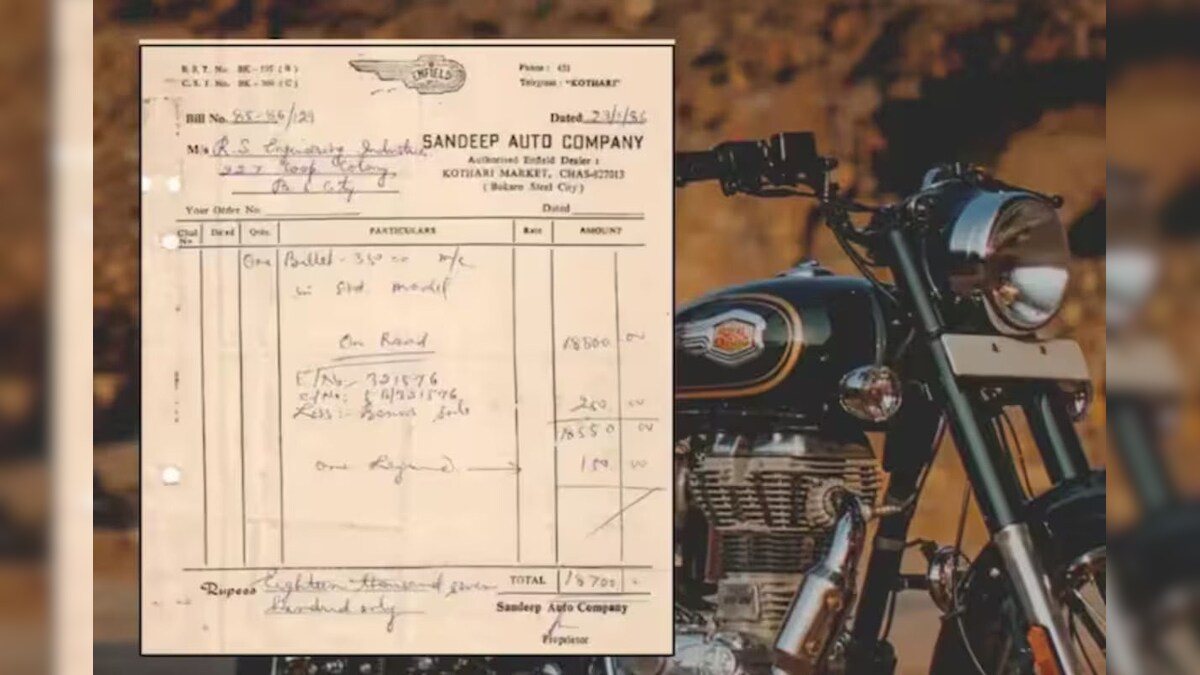 B.S.T. No. BK-
C.S.T. No. BK-
ENFIELD
Phone : 451
Telegram : "KOTHARI"
Bill No. 85-86/129
Dated 23/1/86
M/s R.S. Engineering Industries
SANDEEP AUTO COMPANY
Authorised Enfield Dealer :
KOTHARI MARKET, CHAS-827013
( Bokaro Steel City )
Colony,
City
Your Order No.
Dated
Chal No. Dated Qnty. PARTICULARS Rate AMOUNT
One Bullet - 350 cc m/c
Std. model
On Road 18800 00
E/No. 321576
Less :- Bonus 250 00
18550 00
One 150 00
Rupees Eighteen thousand seven
hundred only
TOTAL 18700
Sandeep Auto Company
Proprietor
ROYAL ENFIELD